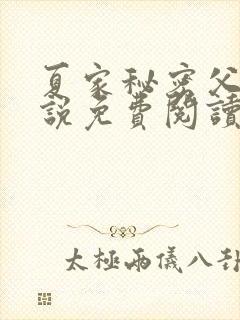 夏家秘密父
說免費閱讀
太極兩儀八卦